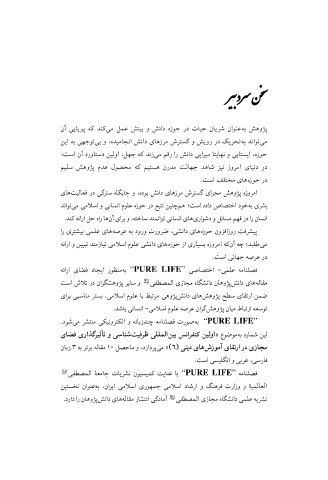 سخن سردبیر
پژوهش به‌عنوان شریان حیات در حوزه دانش و بینش عمل می‌کند که پویایی آن
می‌تواند به‌تحریک در رویش و گسترش مرزهای دانش انجامیده، و بی‌توجهی به این
حوزه، ایستایی و نهایتا میرایی دانش را رقم می‌زند که جهل، اولین دستاورد آن است؛
در دنیای امروز نیز شاهد جهالت مدرن هستیم که محصول عدم پژوهش سلیم
در حوزه‌های مختلف است.
امروزه پژوهش مجرای گسترش مرزهای دانش بوده، و جایگاه سترگی در فعالیت‌های
بشری به‌خود اختصاص داده است؛ هم‌چنین تتبع در حوزه علوم انسانی و اسلامی می‌تواند
انسان را در فهم مسائل و دشواری‌های انسانی توانمند ساخته، و برای آن‌ها راه حل ارائه کند.
پیشرفت روزافزون حوزه‌های دانشی، ضرورت ورود به عرصه‌های علمی بیشتری را
می‌طلبد؛ چه آن‌که امروزه بسیاری از حوزه‌های دانشی علوم اسلامی نیازمند تبیین و ارائه
در عرصه جهانی است.
فصلنامه علمی- اختصاصی "PURE LIFE" به‌منظور ایجاد فضای ارائه
مقاله‌های دانش‌پژوهان دانشگاه مجازی المصطفی و سایر پژوهشگران در تلاش است
ضمن ارتقای سطح پژوهش‌های دانش‌پژوهی مرتبط با علوم اسلامی، بستر مناسبی برای
توسعه ارتباط میان پژوهش‌گران عرصه علوم اسلامی- انسانی باشد.
"PURE LIFE" به‌صورت فصلنامه چندزبانه و الکترونیکی منتشر می‌شود.
این شماره به‌موضوع «اولین کنفرانس بین‌المللی ظرفیت‌شناسی و تأثیرگذاری فضای
مجازی در ارتقای آموزش‌های دینی (۶)» می‌پردازد، و ماحصل ۱۰ مقاله برتر به ۳ زبان
فارسی، عربی و انگلیسی است.
فصلنامه "PURE LIFE" با عنایت کمیسیون نشریات جامعة المصطفی
العالمیة و وزارت فرهنگ و ارشاد اسلامی جمهوری اسلامی ایران، به‌عنوان نخستین
نشریه علمی دانشگاه مجازی المصطفی آمادگی انتشار مقاله‌های دانش‌پژوهان را دارد.